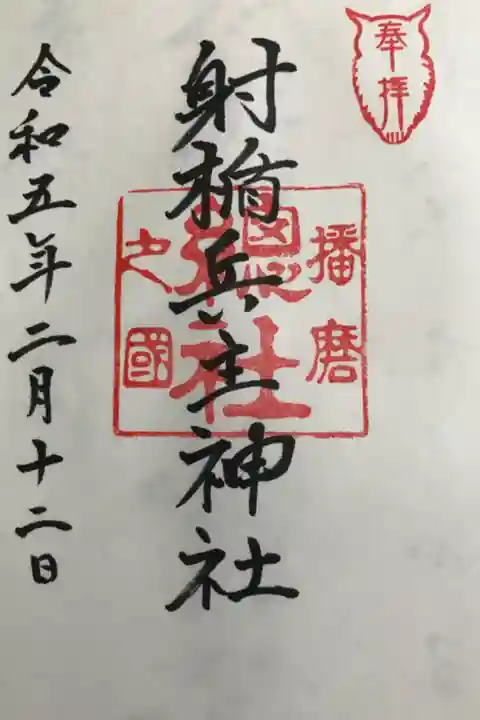 奉拝
播磨
総社
之國
射楯兵主神社
令和五年二月十二日